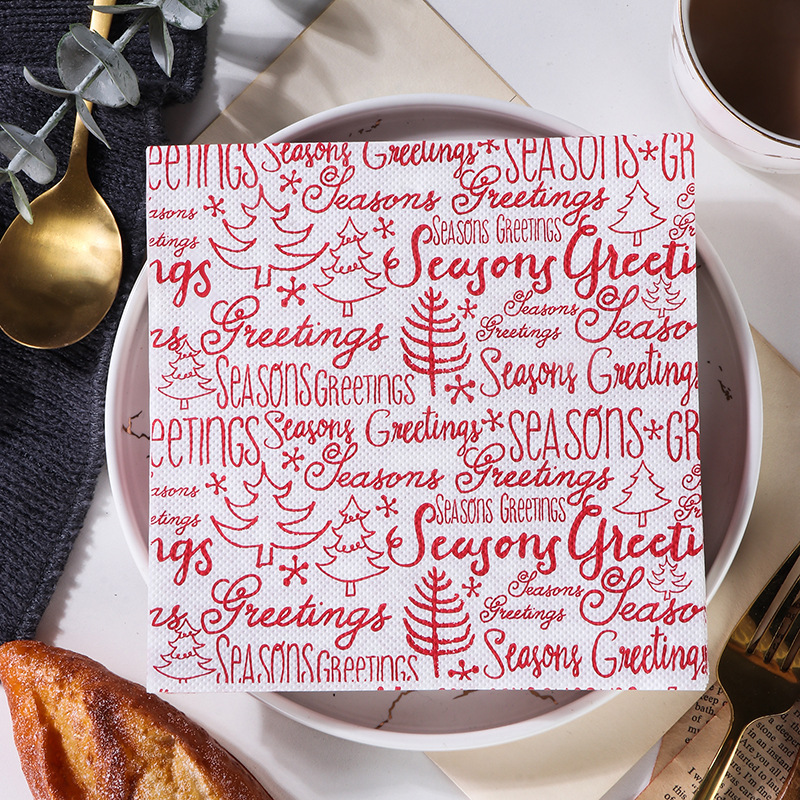 eetings Seasons Greetings * Seasons * Gr
Seasons Greetings
easons
eetings
Seasons Greetings
ngs
Seasons Greeti
Seasons
Greetings
Seaso
Greetings
Seasons Greetings
Seasons Greetings
eetings Seasons Greetings * Seasons * Gr
Seasons Greetings
easons
eetings
Seasons Greetings
ngs
Seasons Greeti
Seasons
Greetings
Seaso
Greetings
Seasons Greetings
Seasons Greetings
bath
please
I'm fine
In an instant
Are you all